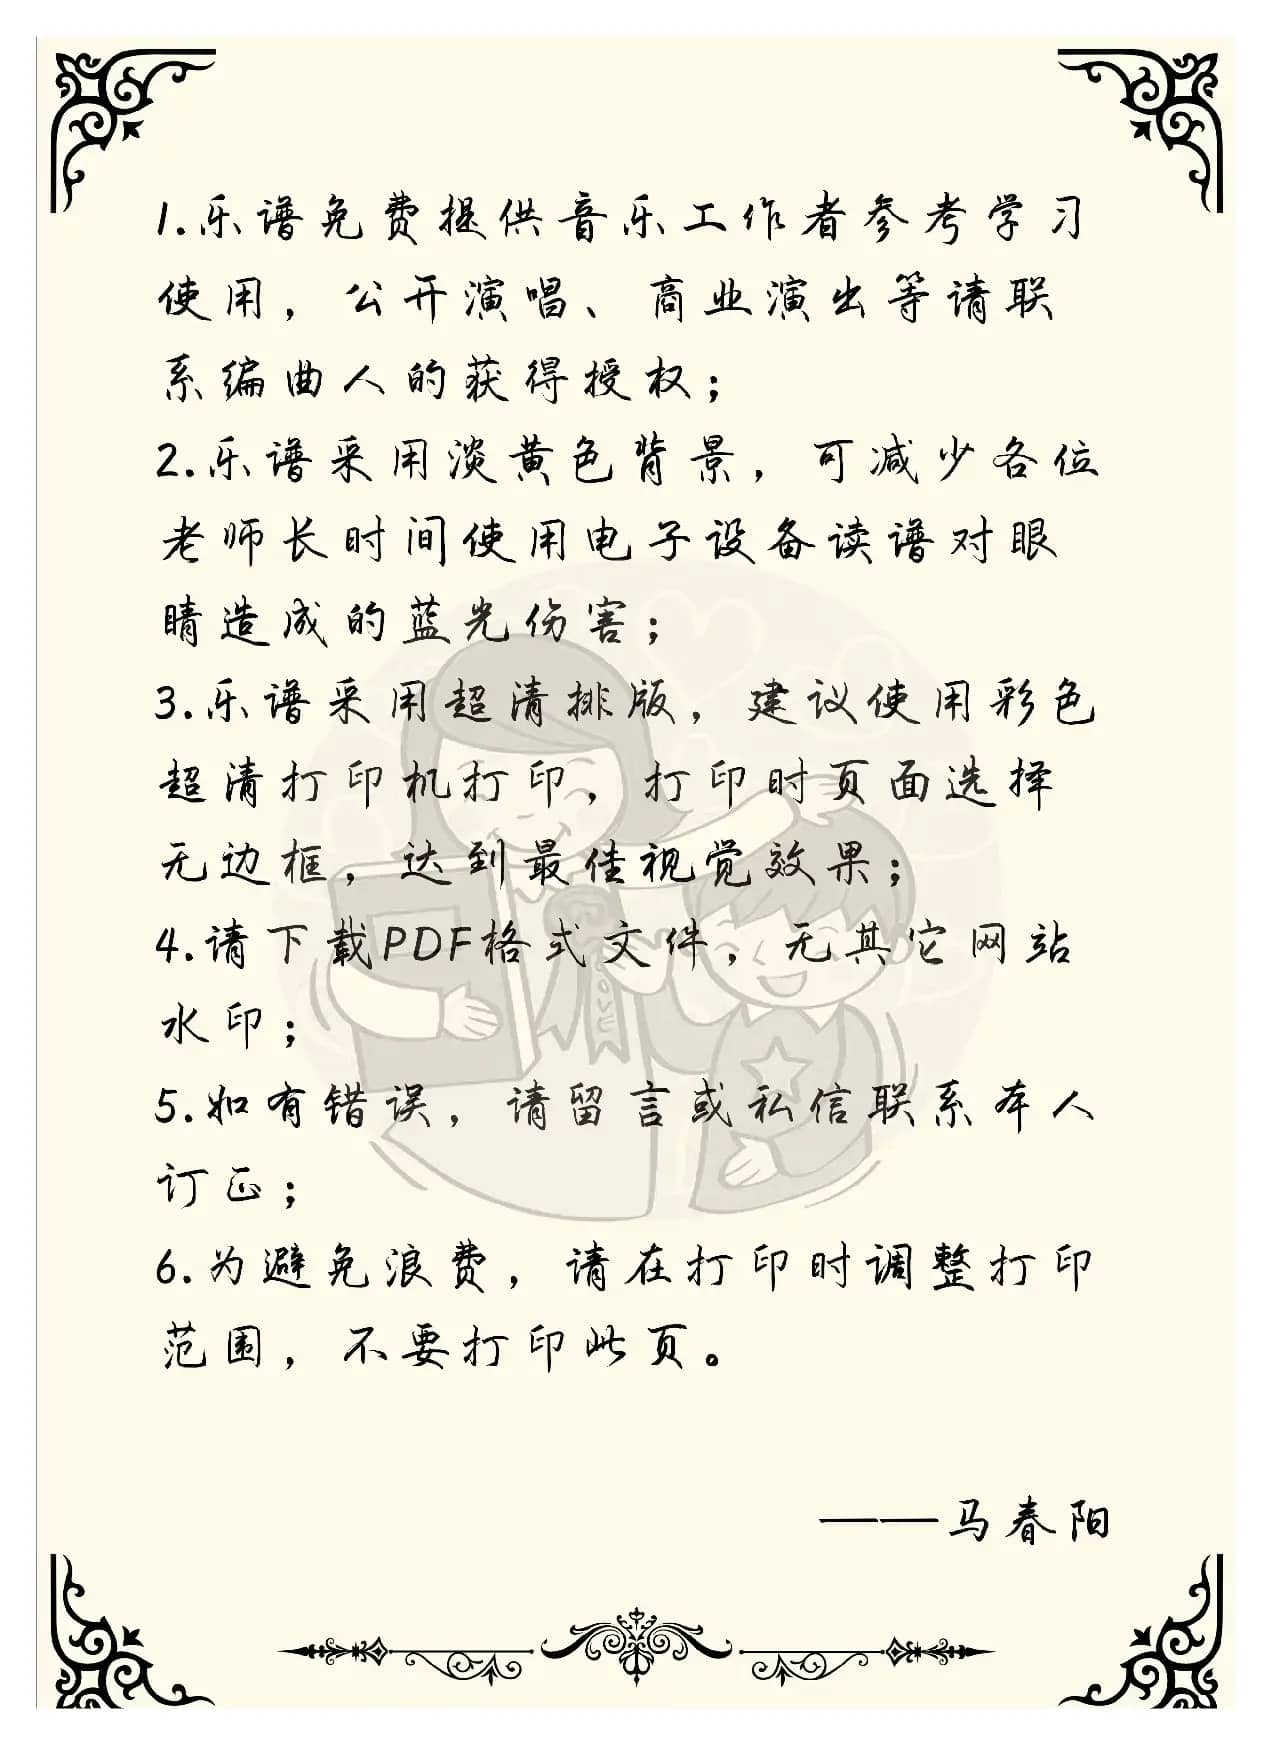 1.乐谱免费提供音乐工作者参考学习
使用，公开演唱、商业演出等请联
系编曲人的获得授权；
2.乐谱采用淡黄色背景，可减少各位
老师长时间使用电子设备读谱对眼
睛造成的蓝光伤害；
3.乐谱采用超清排版，建议使用彩色
超清打印机打印，打印时页面选择
无边框，达到最佳视觉效果；
4.请下载PDF格式文件，无其它网站
水印；
5.如有错误，请留言或私信联系本人
订正；
6.为避免浪费，请在打印时调整打印
范围，不要打印此页。
——马春阳
LOVE